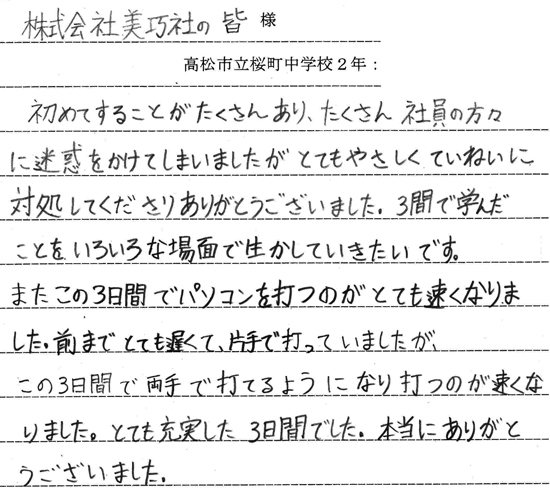 株式会社美巧社の皆様
高松市立桜町中学校2年：
初めてすることがたくさんあり、たくさん社員の方々
に迷惑をかけてしまいましたがとてもやさしくていねいに
対処してくださりありがとうございました。3間で学んだ
ことをいろいろな場面で生かしていきたいです。
またこの3日間でパソコンを打つのがとても速くなりま
した。前までとても遅くて、片手で打っていましたが、
この3日間で両手で打てるようになり打つのが速くな
りました。とても充実した3日間でした。本当にありがと
うございました。